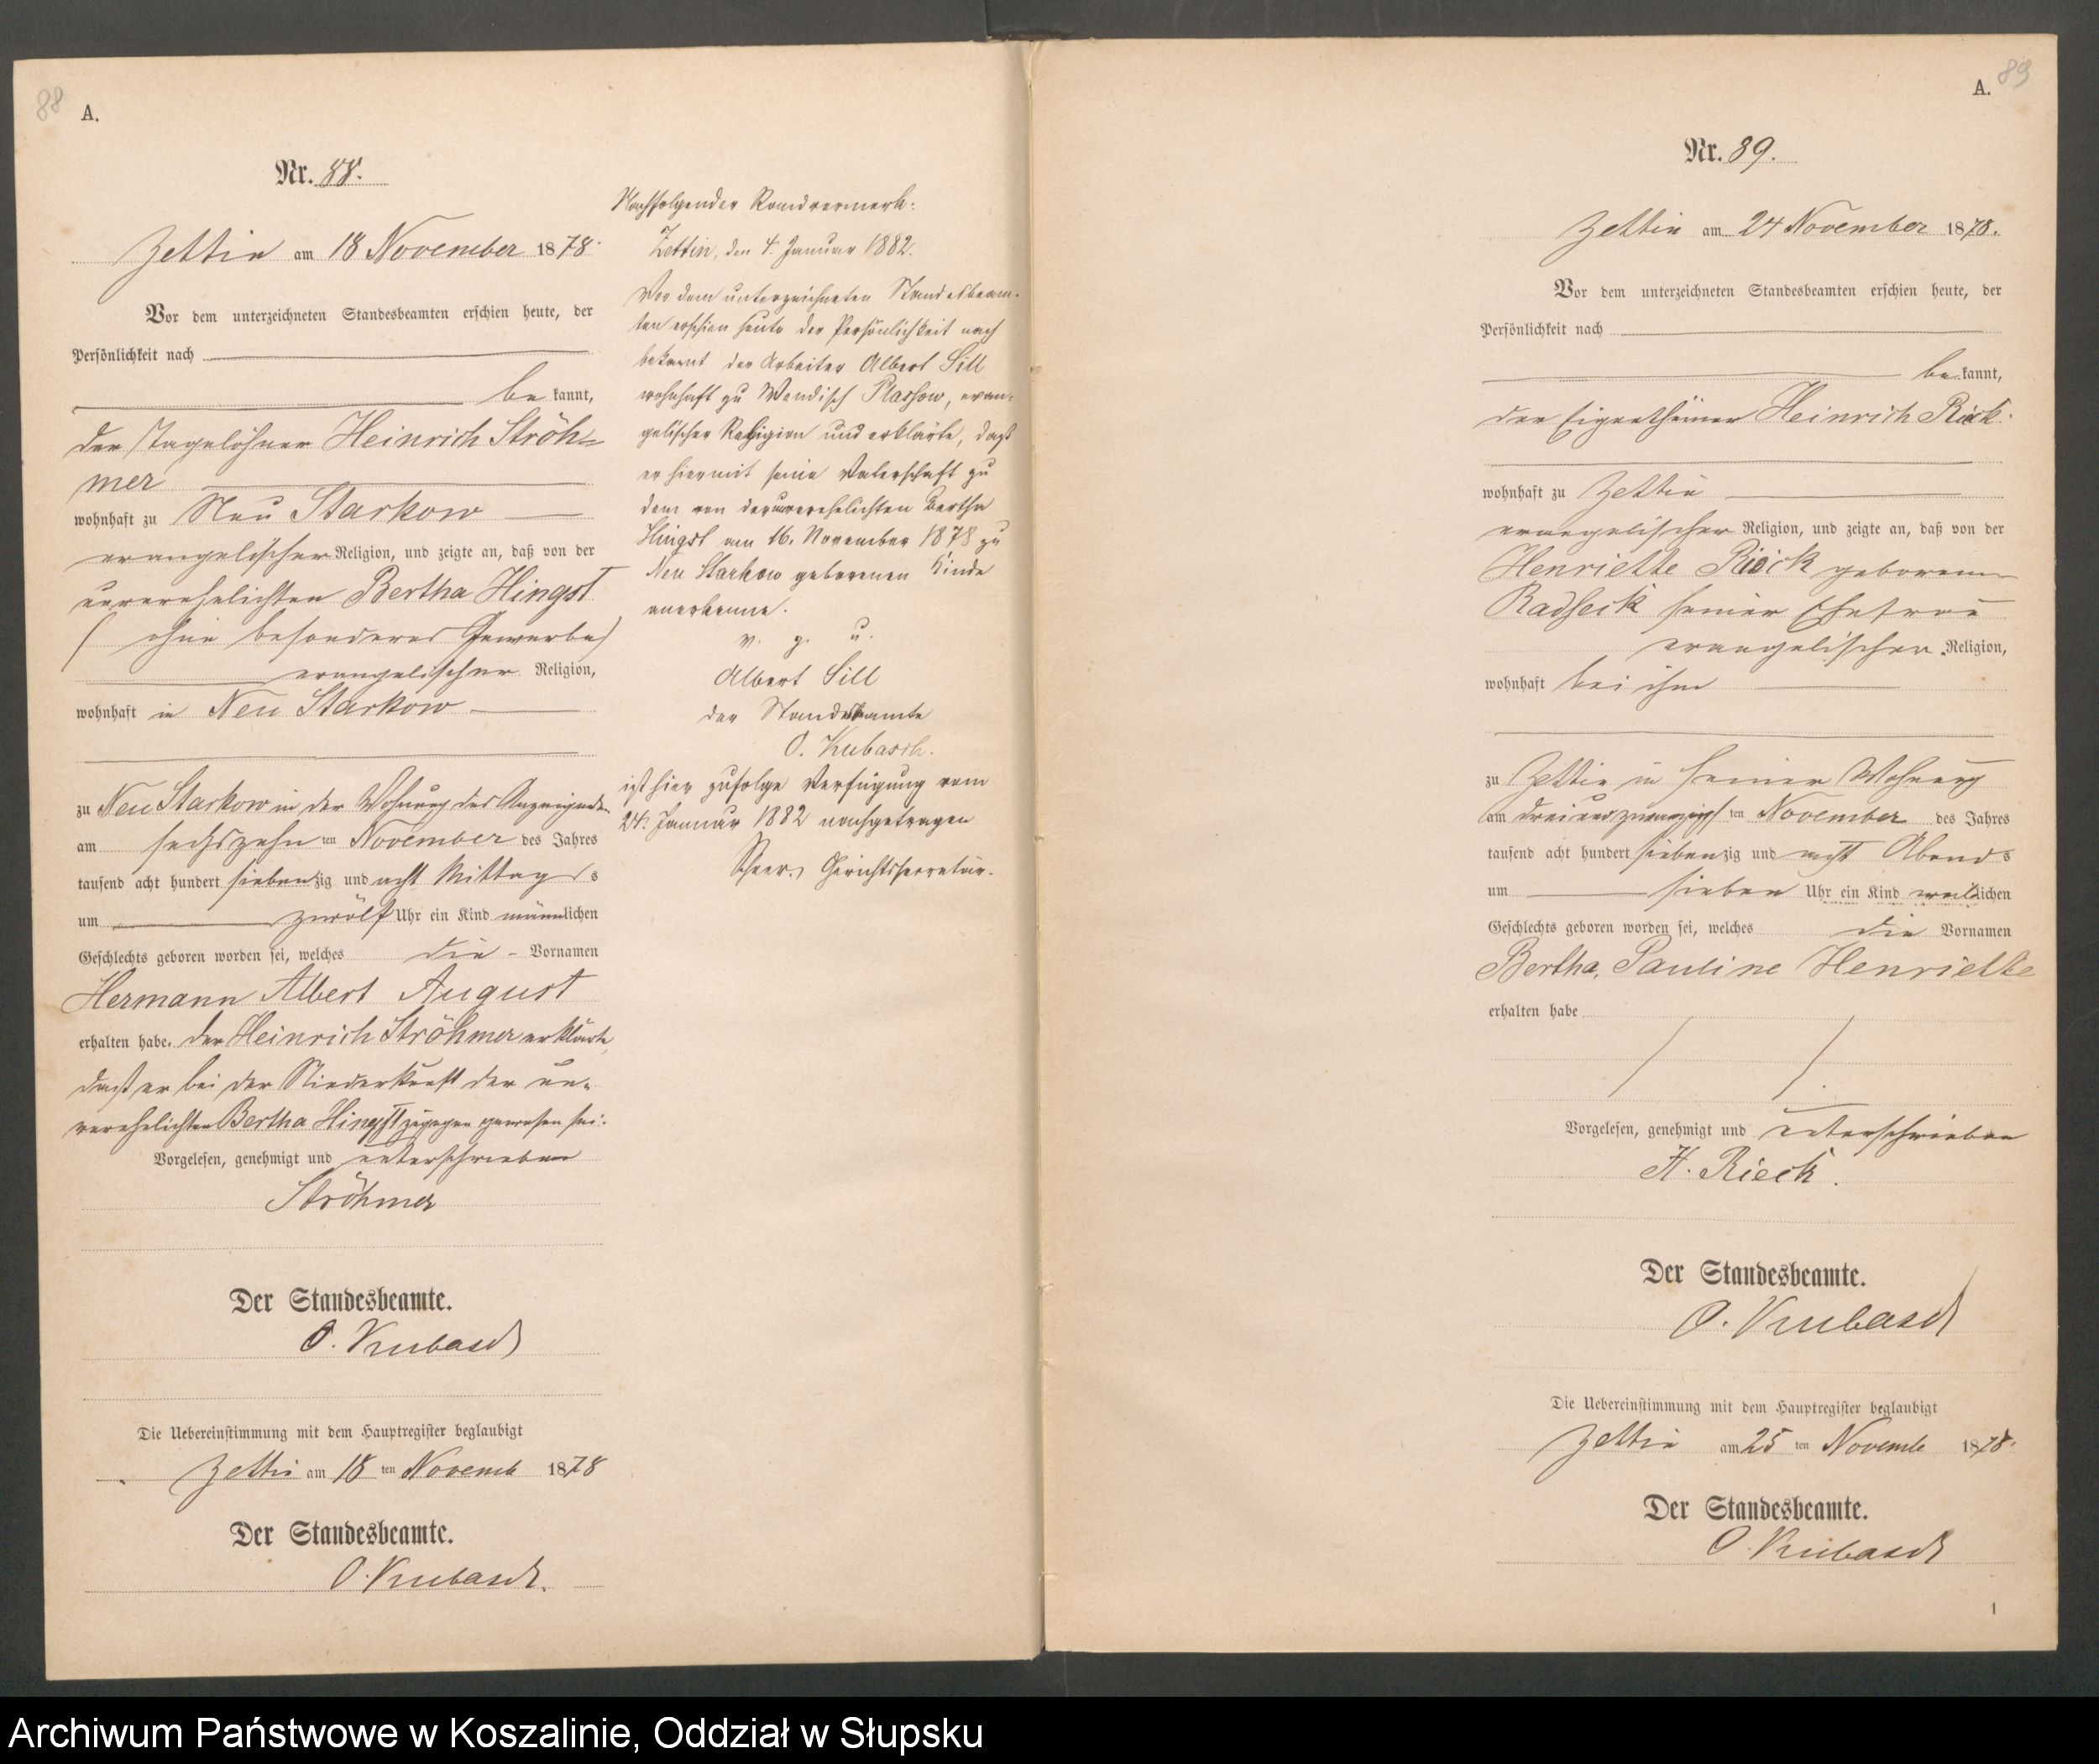 88
A.
Nr. 88.
Zettin am 18 November 1878.
Vor dem unterzeichneten Standesbeamten erschien heute, der
Persönlichkeit nach
be kannt,
der Tagelöhner Heinrich Ströh-
mer
wohnhaft zu Neu Starkow
evangelischer Religion, und zeigte an, daß von der
unverehelichten Bertha Hingst
( ohne besonderes Gewerbe)
evangelischer Religion,
wohnhaft in Neu Starkow
zu Neu Starkow in der Wohnung des Anzeigenden
am sechszehn ten November des Jahres
tausend acht hundert siebenzig und acht Mittags
um zwölf Uhr ein Kind männlichen
Geschlechts geboren worden sei, welches die Vornamen
Hermann Albert August
erhalten habe. Der Heinrich Ströhmer erklärte,
daß er bei der Niederkunft der un-
verehelichten Bertha Hingst zugegen gewesen sei.
Vorgelesen, genehmigt und unterschrieben
Ströhmer
Der Standesbeamte.
O. Kubasch
Die Uebereinstimmung mit dem Hauptregister beglaubigt
Zettin am 18 ten Novemb 1878
Der Standesbeamte.
O. Kubasch.
Nachfolgender Randvermerk:
Zettin, den 4. Januar 1882.
Vor dem unterzeichneten Standesbeam-
ten erschien heute der Persönlichkeit nach
bekannt der Arbeiter Albert Sill
wohnhaft zu Wendisch Plassow, evan-
gelischer Religion und erklärte, daß
er hiermit seine Vaterschaft zu
dem von der unverehelichten Bertha
Hingst am 16. November 1878 zu
Neu Starkow geborenen Kinde
anerkenne.
v. g. u.
Albert Sill
der Standesbeamte
O. Kubasch.
ist hier zufolge Verfügung vom
24. Januar 1882 nachgetragen
Gerichtssecretär.
89
A.
Nr. 89.
Zettin am 24 November 1878.
Vor dem unterzeichneten Standesbeamten erschien heute, der
Persönlichkeit nach
be kannt,
der Eigenthümer Heinrich Rieck
wohnhaft zu Zettin
evangelischer Religion, und zeigte an, daß von der
Henriette Rieck geborenen
Radseck seiner Ehefrau
evangelischer Religion,
wohnhaft bei ihm
zu Zettin in seiner Wohnung
am dreiundzwanzigsten November des Jahres
tausend acht hundert siebenzig und acht Abends
um sieben Uhr ein Kind weiblichen
Geschlechts geboren worden sei, welches die Vornamen
Bertha, Pauline Henriette
erhalten habe
Vorgelesen, genehmigt und unterschrieben
H. Rieck.
Der Standesbeamte.
O. Kubasch
Die Uebereinstimmung mit dem Hauptregister beglaubigt
Zettin am 25 ten Novemb 1878.
Der Standesbeamte.
O. Kubasch
Archiwum Państwowe w Koszalinie, Oddział w Słupsku